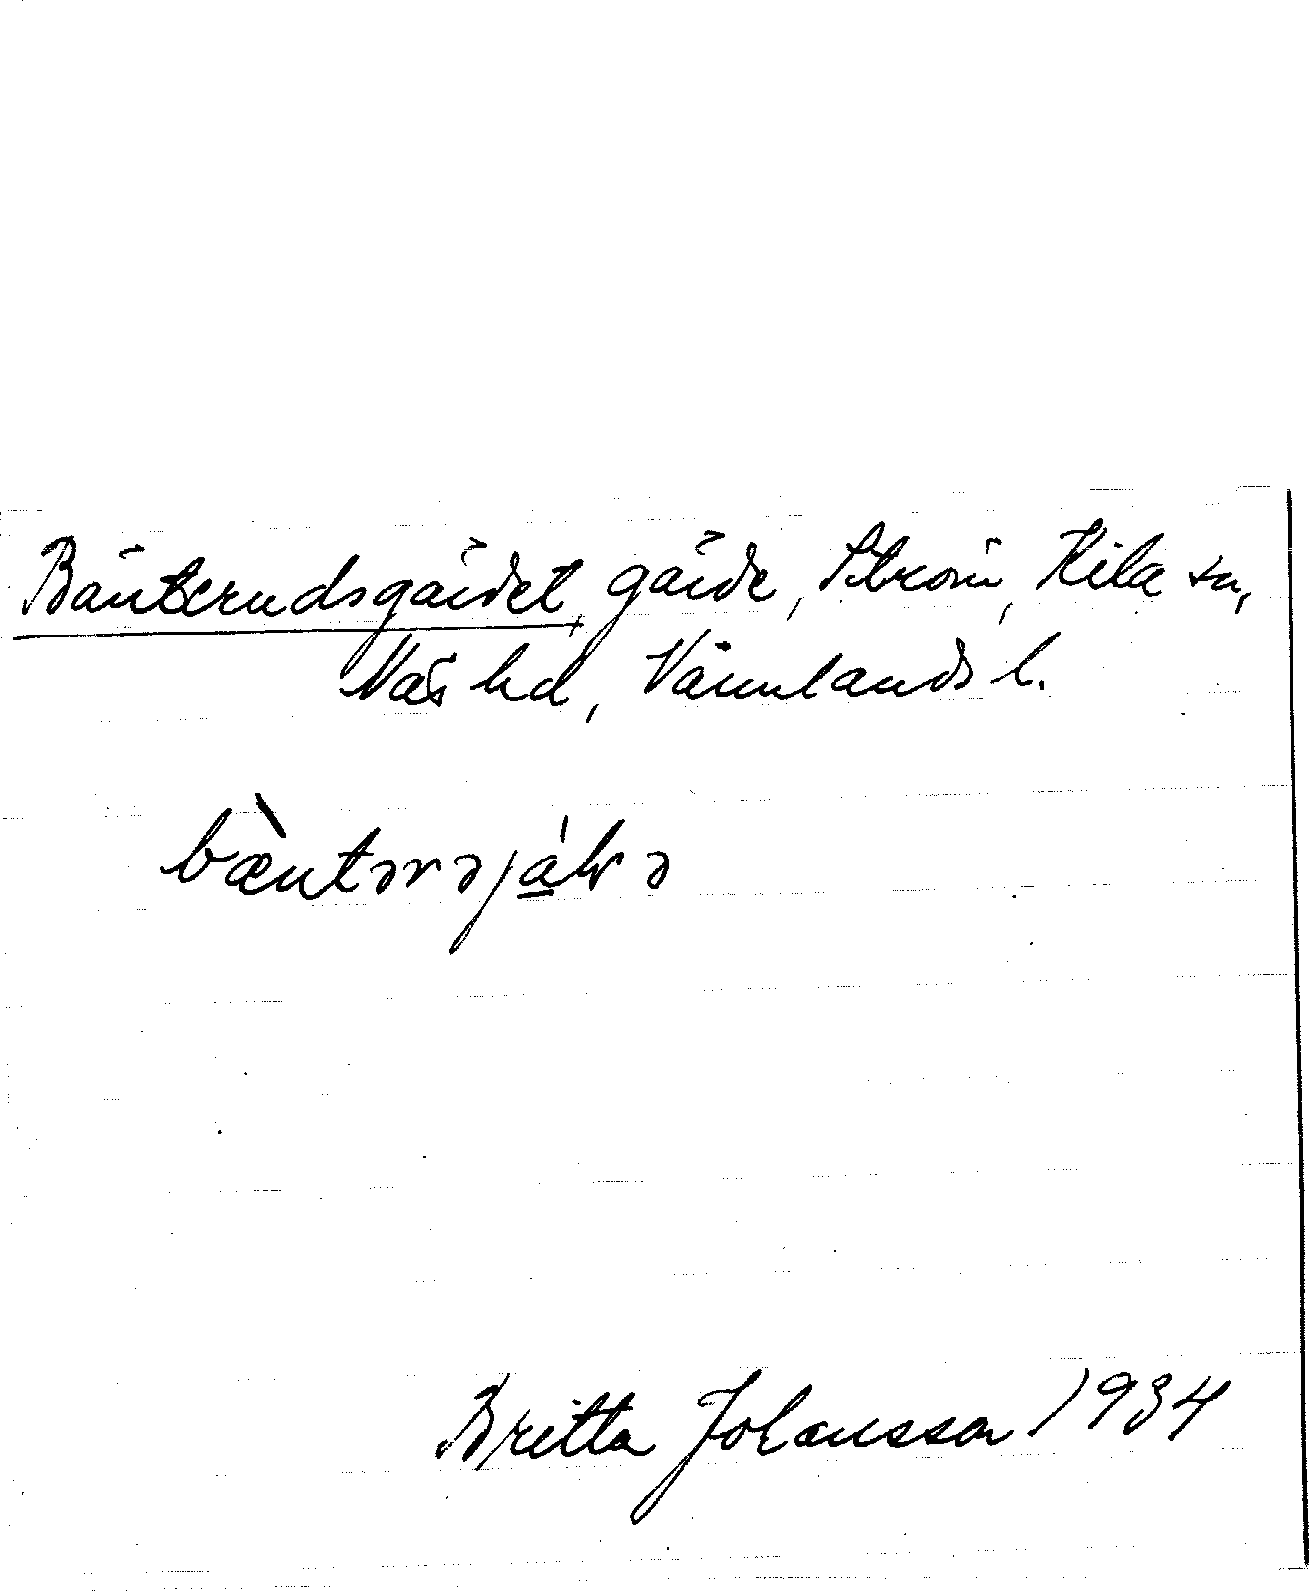 Bänterudsgärdet, gärde, Ström, Kila sn,
Näs hd, Värmlands l.
bæ̀ntərəjálɴə
Britta Johansson 1934